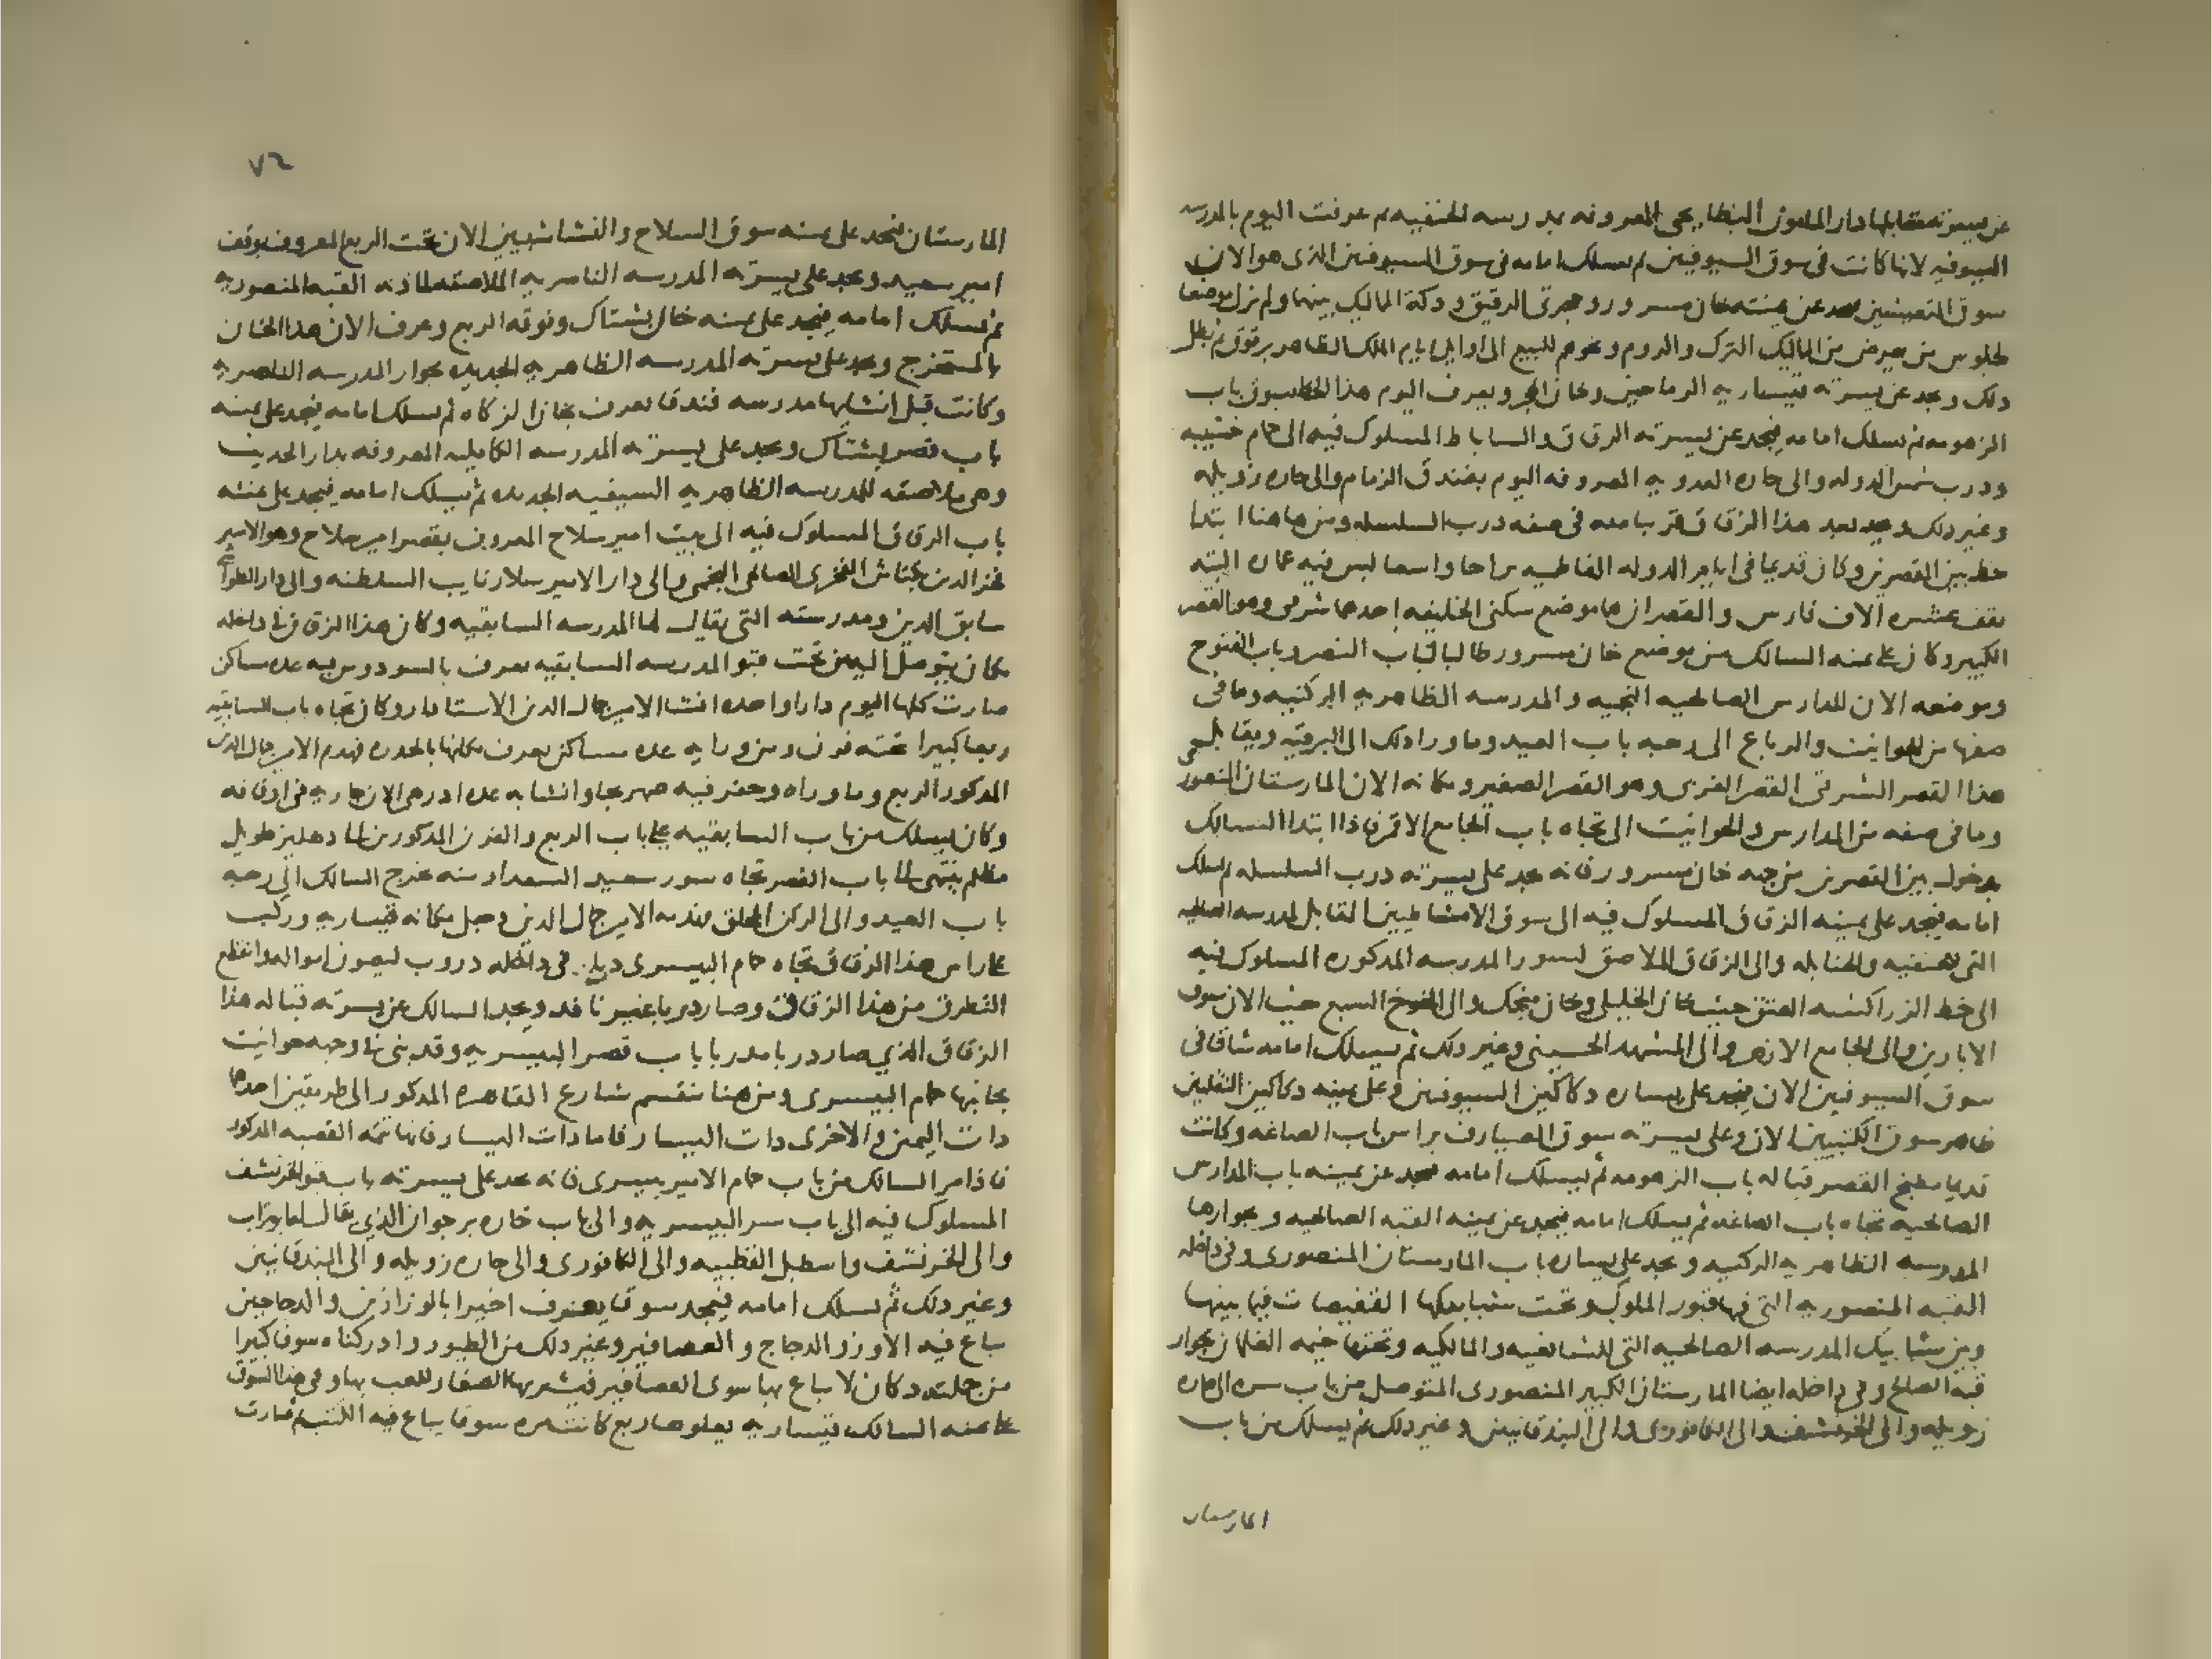 عن يسرته مقابلها دار المامون البطايحي المعروفه بمدرسه الحنفيه ثم عرفت اليوم بالمدرسه
السيوفيه لانها كانت في سوق السيوفيين ثم يسلك امامه في سوق السيوفيين الذي هو الان
سوق المتعيشين فيجد عن يمنته خان مسرور وحجرتي الرقيق ودكة المماليك بينهما ولم تزل موضعا
لجلوس من يعرض من المماليك الترك والروم ونحوهم للبيع الى اوايل ايام الملك الظاهر برقوق ثم بطل
ذلك ويجد عن يسرته قيساريه الرماحين وخان الحجر ويعرف اليوم هذا الخط بسوق باب
الزهومه ثم يسلك امامه فيجد عن يسرته الزقاق والساباط المسلوك فيه الى حمام خشيبه
ودرب شمس الدوله والى حاره العدويه المعروفه اليوم بفندق الزمام والى حاره زويله
وغير ذلك ويجد بعد هذا الزقاق قريبا منه في صفه درب السلسله ومن هاهنا ابتدا
خط بين القصرين وكان قديما في ايام الدوله الفاطميه براحا واسعا ليس فيه عماره البته
يقف عشره الاف فارس والقصران هما موضع سكنى الخليفه احدهما شرقي وهو القصر
الكبير وكان على يمنه السالك من موضع خان مسرور طالبا باب النصر وباب الفتوح
وموضعه الان المدارس الصالحيه النجميه والمدرسه الظاهريه الركنيه وما في
صفها من الحوانيت والرباع الى رحبه باب العيد وما وراء ذلك الى البرقيه ويقابل
هذا القصر الشرقي القصر الغربي وهو القصر الصغير ومكانه الان المارستان المنصوري
وما في صفه من المدارس والحوانيت الى تجاه باب الجامع الاقمر فاذا ابتدا السالك
بدخول بين القصرين من جهه خان مسرور فانه يجد على يسرته درب السلسله ثم يسلك
امامه فيجد على يمنته الزقاق المسلوك فيه الى سوق الامشاطيين المقابل لمدرسه الصالحيه
التي للحنفيه والحنابله والى الزقاق الملاصق لسور المدرسه المذكوره المسلوك فيه
الى خط الزراكشه العتق حيث خان الخليلي وخان منجك والى الخوخ السبع حيث الان سوق
الابارين والى الجامع الازهر والى المشهد الحسيني وغير ذلك ثم يسلك امامه شاقا في
سوق السيوفيين الان فيجد على يساره دكاكين السيوفيين وعلى يمينه دكاكين النقليين
ظاهر سوق الكتبيين الان وعلى يسرته سوق الصيارف براس باب الصاغه وكانت
قديما مطبخ القصر قباله باب الزهومه ثم يسلك امامه فيجد عن يمينه باب المدارس
الصالحيه تجاه باب الصاغه ثم يسلك امامه فيجد عن يمينه القبه الصالحيه وبجوارها
المدرسه الظاهريه الركنيه ويجد على يساره باب المارستان المنصوري وفي داخله
القبه المنصوريه التي فيها قبور الملوك وتحت شبابيكها القفيصات فيما بينها
وبين شبابيك المدرسه الصالحيه التي للشافعيه والمالكيه وتحتها خيمه الغلمان بجوار
قبة الصالح وفي داخله ايضا المارستان الكبير المنصوري المتوصل من باب سره الى حاره
زويله والى الخرنشف والى الكافوري والى البندقانيين وغير ذلك ثم يسلك من باب
المارستان
٧٢
المارستان فيجد على يمنته سوق السلاح والنشاشبيين الان تحت الربع المعروف بوقف
امير سعيد ويجد على يسرته المدرسه الناصريه الملاصقه لماذنه القبه المنصوريه
ثم يسلك امامه فيجد على يمنته خان بشتاك وفوقه الربع وعرف الان هذا الخان
بالمستخرج ويجد على يسرته المدرسه الظاهريه الجديده بجوار المدرسه الناصريه
وكانت قبل انشايها مدرسه فندقا يعرف بخان الزكاه ثم يسلك امامه فيجد على يمنته
باب قصر بشتاك ويجد على يسرته المدرسه الكامليه المعروفه بدار الحديث
وهي ملاصقه للمدرسه الظاهريه السيفيه الجديده ثم يسلك امامه فيجد على يمنته
باب الزقاق المسلوك فيه الى بيت امير سلاح المعروف بقصر امير سلاح وهو الامير
فخر الدين بكتاش الفخري الصالحي النجمي والى دار الامير سلار نايب السلطنه والى دار الطواشي
سابق الدين ومدرسته التي يقال لها المدرسه السابقيه وكان هذا الزقاق في داخله
مكان يتوصل اليه من تحت قبو المدرسه السابقيه يعرف بالسودوس فيه عده مساكن
صارت كلها اليوم دارا واحده انشا الامير جمال الدين الاستادار وكان تجاه باب السابقيه
ربعا كبيرا تحته فرن ومن ورايه عده مساكن يعرف مكانها بالحدره فهدم الامير جمال الدين
المذكور الربع وما وراه وحفر فيه صهريجا وانشا به عده ادر هي الان جاريه في اوقافه
وكان يسلك من باب السابقيه على باب الربع والفرن المذكورين الى دهليز طويل
مظلم ينتهي الى باب القصر تجاه سور سعيد السعدا ومنه يخرج السالك الى رحبه
باب العيد والى الركن المخلق فهدمه الامير جمال الدين وجعل مكانه قيساريه وركب
على راس هذا الزقاق تجاه حمام البيسري دربا في داخله دروب ليصون امواله وانقطع
التطرق من هذا الزقاق وصار دربا غير نافذ ويجد السالك عن يسرته قباله هذا
الزقاق الذي صار دربا مدربا باب قصر البيسريه وقد بني في وجهه حوانيت
بجانبها حمام البيسري ومن هنا ينقسم شارع القاهره المذكور الى طريقين احداهما
ذات اليمين والاخرى ذات اليسار فاما ذات اليسار فانها تتمه القصبه المذكوره
فاذا مر السالك من باب حمام الامير بيسري فانه يجد على يسرته باب قبو الخرنشف
المسلوك فيه الى باب سر البيسريه والى باب حاره برجوان الذي يقال له ابو تراب
والى الخرنشف واسطبل القطبيه والى الكافوري والى حاره زويله والى البندقانيين
وغير ذلك ثم يسلك امامه فيجد سوقا يعرف اخيرا بالوزازين والدجاجين
يباع فيه الاوز والدجاج والعصافير وغير ذلك من الطيور وادركناه سوقا كبيرا
من جملته دكان لا يباع بها سوى العصافير فيشتريها الصغار للعب بها وفي هذا السوق
على يمنه السالك قيساريه يعلوها ربع كانت مده سوقا يباع فيه الكتب ثم صارت